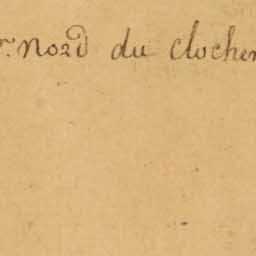 nord du clocher